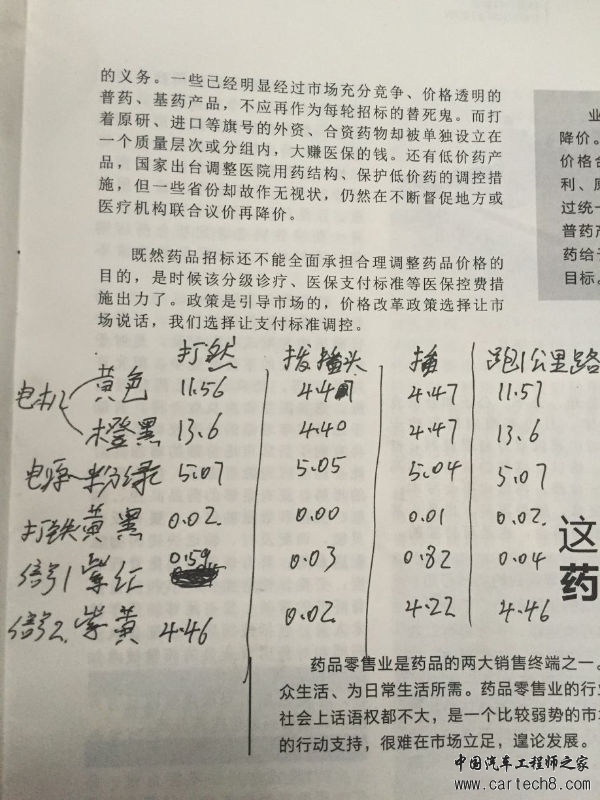 的义务。一些已经明显经过市场充分竞争、价格透明的
普药、基药产品，不应再作为每轮招标的替死鬼。而打
着原研、进口等旗号的外资、合资药物却被单独设立在
一个质量层次或分组内，大赚医保的钱。还有低价药产
品，国家出台调整医院用药结构、保护低价药的调控措
施，但一些省份却故作无视状，仍然在不断督促地方或
医疗机构联合议价再降价。
既然药品招标还不能全面承担合理调整药品价格的
目的，是时候该分级诊疗、医保支付标准等医保控费措
施出力了。政策是引导市场的，价格改革政策选择让市
场说话，我们选择让支付标准调控。
业
降价。
价格合
利、原
过统一
普药产
药给予
目标。
打然 拔插头 插 跑1公里路
电机 黄色 11.56 4.47 11.57
橙黑 13.6 4.40 4.47 13.6
电源 粉绿 5.07 5.05 5.04 5.07
打铁黄黑 0.02 0.00 0.01 0.02
信号1 紫红 0.59 0.03 0.82 0.04
信号2 紫黄 4.46 0.02 4.22 4.46
这
药
药品零售业是药品的两大销售终端之一。
众生活、为日常生活所需。药品零售业的行业
社会上话语权都不大，是一个比较弱势的市场
的行动支持，很难在市场立足，遑论发展。
中国汽车工程师之家
www.cartech8.com